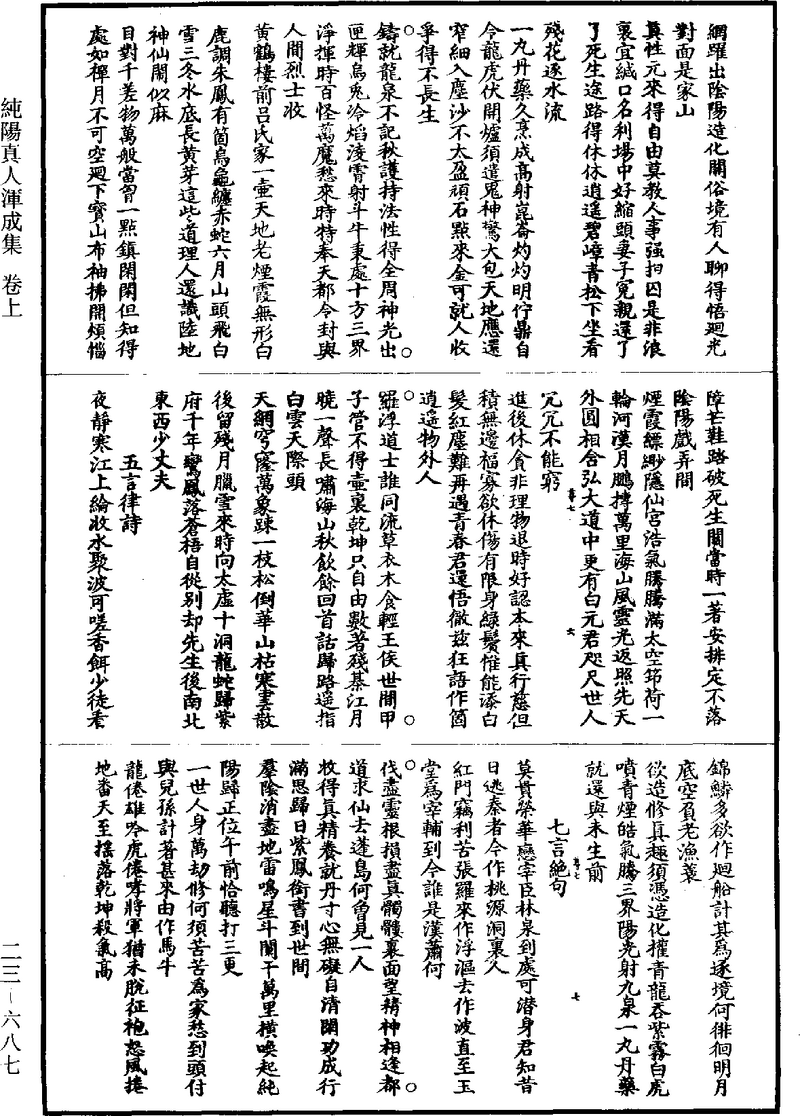 純陽真人渾成集　卷上
二三－六八七
網羅出陰陽造化關俗境有人聊得悟迴光
對面是家山
真性元來得自由莫教人事强拘囚是非浪
裏宜緘口名利場中好縮頭妻子冤親還了
了死生途路得休休逍遥碧嶂青松下坐看
殘花逐水流
一九丹藥久烹成高射崑崙灼灼明佇鼎自
令龍虎伏開爐須遣鬼神驚大包天地應還
窄細入塵沙不太盈頑石點來金可就人收
爭得不長生
鑄就龍泉不記秋護持法性得全周神光出
匣輝烏兎冷焰淩霄射斗牛秉處十方三界
淨揮時百怪萬魔愁來時特奉天都令封與
人間烈士收
黄鶴樓前吕氏家一壷天地老煙霞無形白
鹿調朱鳳有箇烏龜纏赤蛇六月山頭飛白
雪三冬水底長黄芽這些道理人還識陸地
神仙鬧似麻
目對千差物萬般當胷一點鎮閑閑但知得
處如禪月不可空迴下寶山布袖拂開煩惱
障芒鞋踏破死生關當時一著安排定不落
陰陽戲弄間
煙霞縹緲隱仙宫浩氣騰騰滿太空筇荷一
輪河漢月鵬摶萬里海山風靈光返照先天
外圓相含弘大道中更有白元君咫尺世人
冗冗不能窮
進後休貪非理物退時好認本來真行慈但
積無邊福寡欲休傷有限身緑鬢惟能添白
髪紅塵難再遇青春君還悟徹兹狂語作箇
逍遥物外人
羅浮道士誰同流草衣木食輕王侯世間甲
子管不得壷裏乾坤只自由數著殘棊江月
曉一聲長嘯海山秋飲餘回首話歸路遥指
白雲天際頭
天網穹窿萬象踈一枝松倒華山枯寒晝散
後留殘月臘雪來時向太虚十洞龍蛇歸紫
府千年鸞鳳落蒼梧自從别却先生後南北
東西少丈夫
五言律詩
夜靜寒江上綸收水聚波可嗟香餌少徒看
錦鱗多欲作迴船計其爲逐境何徘徊明月
底空負老漁蓑
欲造修真趣須憑造化權青龍吞紫霧白虎
噴青煙皓氣騰三界陽光射九泉一丸丹藥
就還與未生前
七言絶句
莫貫榮華戀宰臣林泉到處可潜身君知昔
日逃秦者今作桃源洞裏人
紅門竊利苦張羅來作浮漚去作波直至玉
堂爲宰輔到今誰是漢蕭何
伐盡靈根損盡真髑髏裏面望精神相逢都
道求仙去蓬島何曾見一人
收得真精養就丹寸心無礙自清閑功成行
滿思歸日紫鳳銜書到世間
羣陰消盡地雷鳴星斗闌干萬里横喚起純
陽歸正位午前恰聽打三更
一世人身萬劫修何須苦苦爲家愁到頭付
與兒孫計著甚來由作馬牛
龍倦雄吟虎倦哮將軍猶未脱征袍怒風捲
地番天至摇落乾坤殺氣高